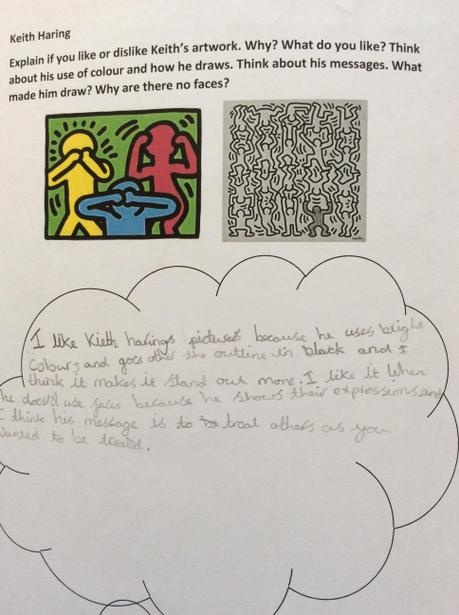 Keith Haring
Explain if you like or dislike Keith's artwork. Why? What do you like? Think
about his use of colour and how he draws. Think about his messages. What
made him draw? Why are there no faces?
I like Kieth harings pictures because he uses bright
colours and goes other the outline in black and I
think it makes it stand out more. I like it When
he doesn't use faces because he shows their expressions and
I think his message is to treat others as you
wanted to be treated.